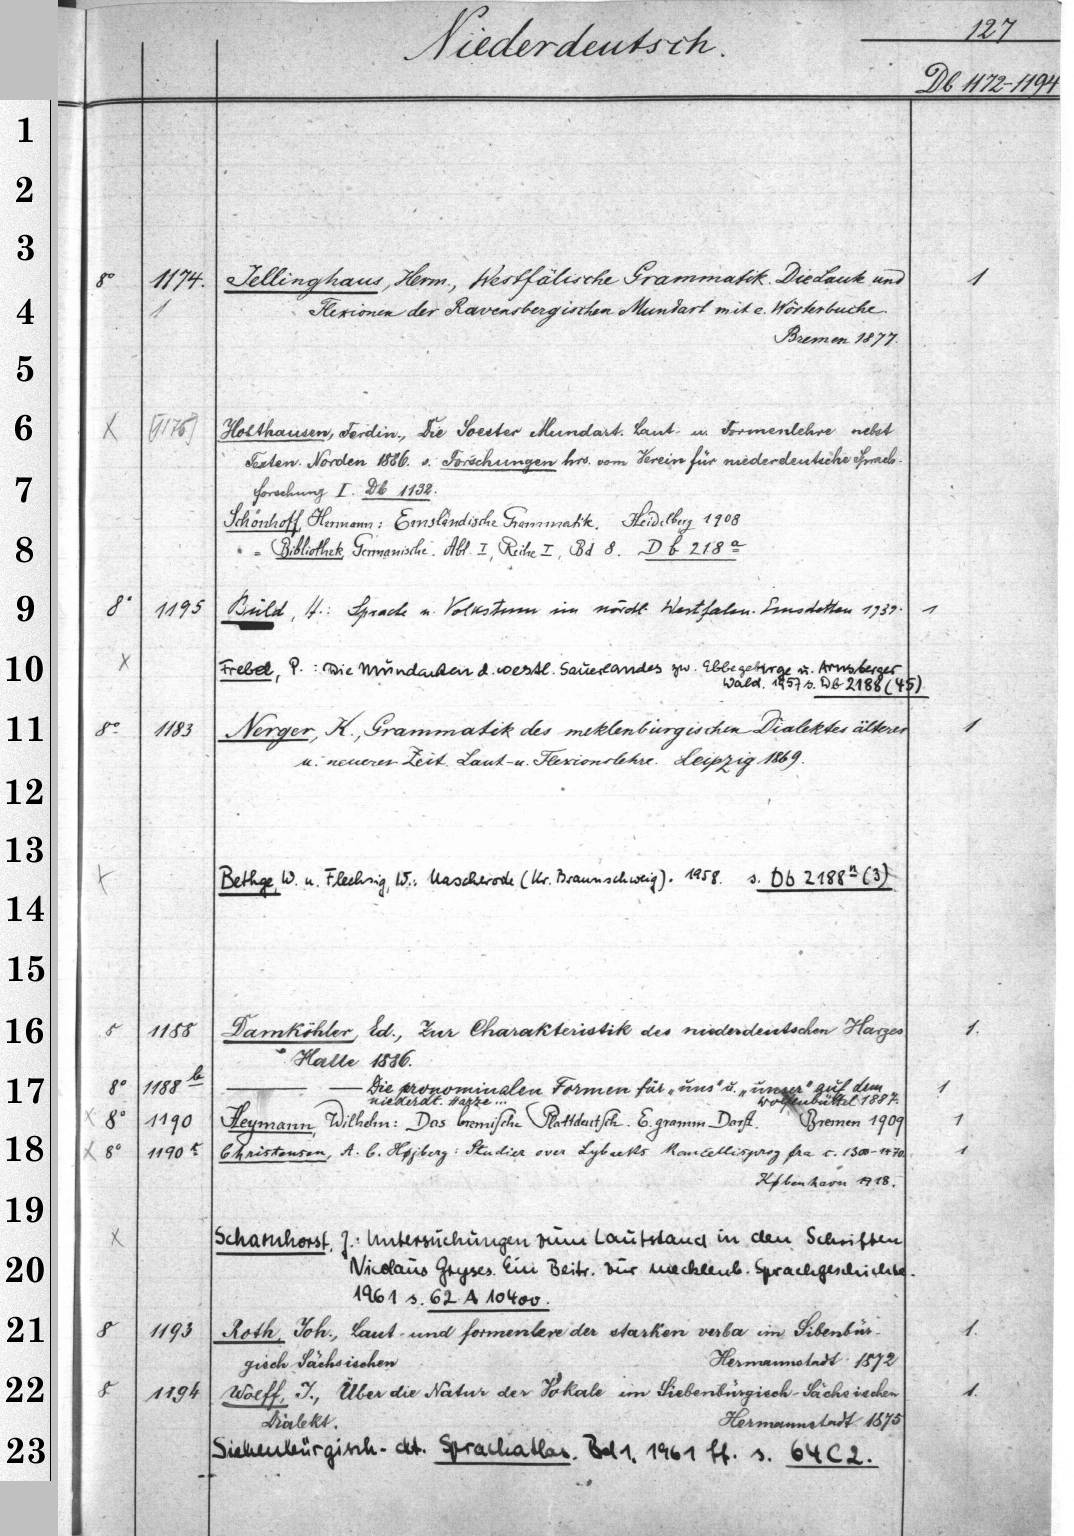 Niederdeutsch.
127
Db 1172-1194
1
2
3
8° 1174. Jellinghaus, Herm., Westfälische Grammatik. Die Laute und 1
4 1 Flexionen der Ravensbergischen Mundart mit e. Wörterbuche
Bremen 1877.
5
6 X [1176] Holthausen, Ferdin., Die Soester Mundart. Laut- u. Formenlehre nebst
Texten. Norden 1886. s. Forschungen hrs. vom Verein für niederdeutsche Sprach-
7 forschung I. Db 1132.
Schönhoff, Hermann: Emsländische Grammatik. Heidelberg 1908
8 " = Bibliothek, Germanische. Abt. I, Reihe I, Bd 8. Db 218 a
9 8° 1195 Büld, H.: Sprache u. Volkstum im nördl. Westfalen. Emsdetten 1939. 1
10 X Frebel, P.: Die Mundarten d. westl. Sauerlandes zw. Ebbegebirge u. Arnsberger
Wald. 1957 s. Db 2188 (45)
11 8° 1183 Nerger, K., Grammatik des meklenburgischen Dialektes älterer 1
u. neuerer Zeit. Laut- u. Flexionslehre. Leipzig 1869.
12
13
X Bethge, W. u. Flechsig, W.: Mascherode (Kr. Braunschweig). 1958. s. Db 2188 n (3)
14
15
16 8 1188 Damköhler, Ed., Zur Charakteristik des niederdeutschen Harzes 1.
Halle 1886.
17 8° 1188 b — — Die pronominalen Formen für „uns" u. „unser" auf dem 1
niederdt. Harze... Wolfenbüttel 1887.
X 8° 1190 Heymann, Wilhelm: Das bremische Plattdeutsch. E. gramm. Darst. Bremen 1909 1
18 X 8° 1190 Christensen, A. C. Højberg: Studier over Lybæks Kancellisprog fra c. 1300-1470. 1
København 1918.
19
X Scharnhorst, J.: Untersuchungen zum Lautstand in den Schriften
20 Nicolaus Gryses. Ein Beitr. zur mecklenb. Sprachgeschichte.
1961 s. 62 A 10400.
21 8 1193 Roth, Joh., Laut- und formenlere der starken verba im Sibenbür- 1.
gisch-Sächsischen Hermannstadt 1872
22 8 1194 Wolff, J., Über die Natur der Vokale im Siebenbürgisch-Sächsischen 1.
Dialekt. Hermannstadt 1875
23 Siebenbürgisch-dt. Sprachatlas. Bd 1. 1961 ff. s. 64 C 2.